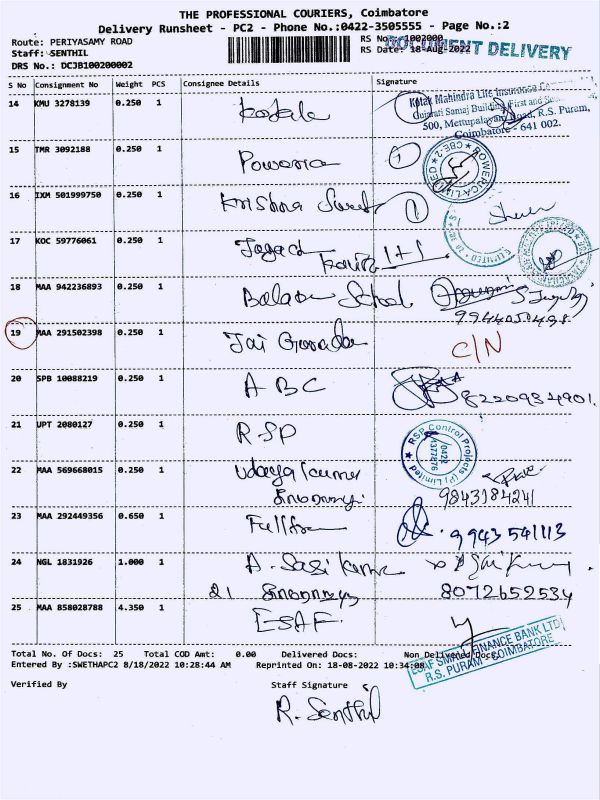 THE PROFESSIONAL COURIERS, Coimbatore
Delivery Runsheet - PC2 - Phone No.:0422-3505555 - Page No.:2
Route: PERIYASAMY ROAD
RS No.: 1002000
Staff: SENTHIL
RS Date: 18-Aug-2022
DOCUMENT DELIVERY
DRS No.: DCJB100200002
S No Consignment No Weight PCS Consignee Details Signature
14 KMU 3278139 0.250 1 Kotak
Kotak Mahindra Life Insurance
Gujarati Samaj Building, First and
500, Mettupalayam Road, R.S. Puram,
Coimbatore - 641 002.
15 TMR 3092188 0.250 1 Powerica 1
POWERICA LIMITED CBE-2
16 IXM 501999750 0.250 1 Krishna Sweet 1
17 KOC 59776061 0.250 1 Jagad
1+1
18 MAA 942236893 0.250 1 Balaon School
9944050498
19 MAA 291502398 0.250 1 Jai
C/N
20 SPB 10088219 0.250 1 ABC 8220934901.
21 UPT 2080127 0.250 1 RSP
RSP Control Projects (P) Limited
22 MAA 569668015 0.250 1 Udaya Kumar
9843184241
23 MAA 292449356 0.650 1 9943541113
24 NGL 1831926 1.000 1 A. Sasi Kumar
21 8072652534
25 MAA 858028788 4.350 1 ESAF
Total No. Of Docs: 25 Total COD Amt: 0.00 Delivered Docs: Non Delivered Docs:
Entered By :SWETHAPC2 8/18/2022 10:28:44 AM Reprinted On: 18-08-2022 10:34:08
ESAF SMALL FINANCE BANK LTD
R.S. PURAM - COIMBATORE
Verified By Staff Signature
R. Senthil